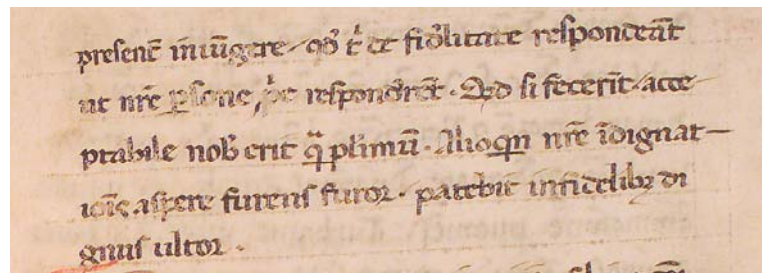 presenť iniūgere. qđ ť de fiđlitate respondeāt
ut nrē ꝑsone, ꝑe respondēȓt. Qđ si fecerīt, acce
ptabile nob̄ erit qᵃ plimū. Alioqn nrē īdignat
iōis aspere furens furor. patebit infidelibȝ di
gnus ultor.